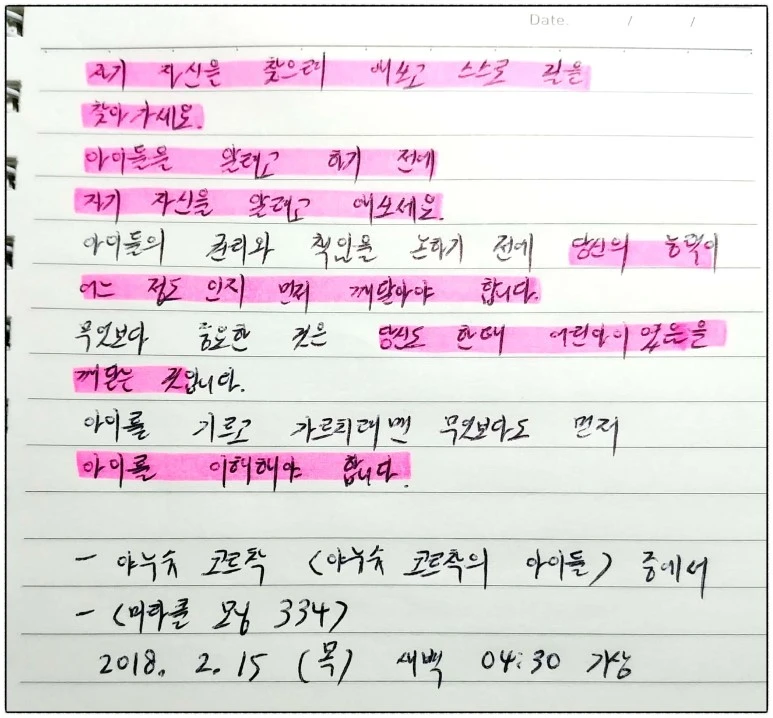 Date. / /
자기 자신을 찾으려 애쓰고 스스로 길을
찾아 가세요.
아이들을 알려고 하기 전에
자기 자신을 알려고 애쓰세요.
아이들의 권리와 책임을 논하기 전에 당신의 능력이
어느 정도 인지 먼저 깨달아야 합니다.
무엇보다 중요한 것은 당신도 한때 어린아이였음을
깨닫는 것입니다.
아이를 기르고 가르치려면 무엇보다도 먼저
아이를 이해해야 합니다.
- 야누슈 코르착 <야누슈 코르착의 아이들> 중에서
- <미라클 모닝 334>
2018. 2. 15 (목) 새벽 04:30 기상